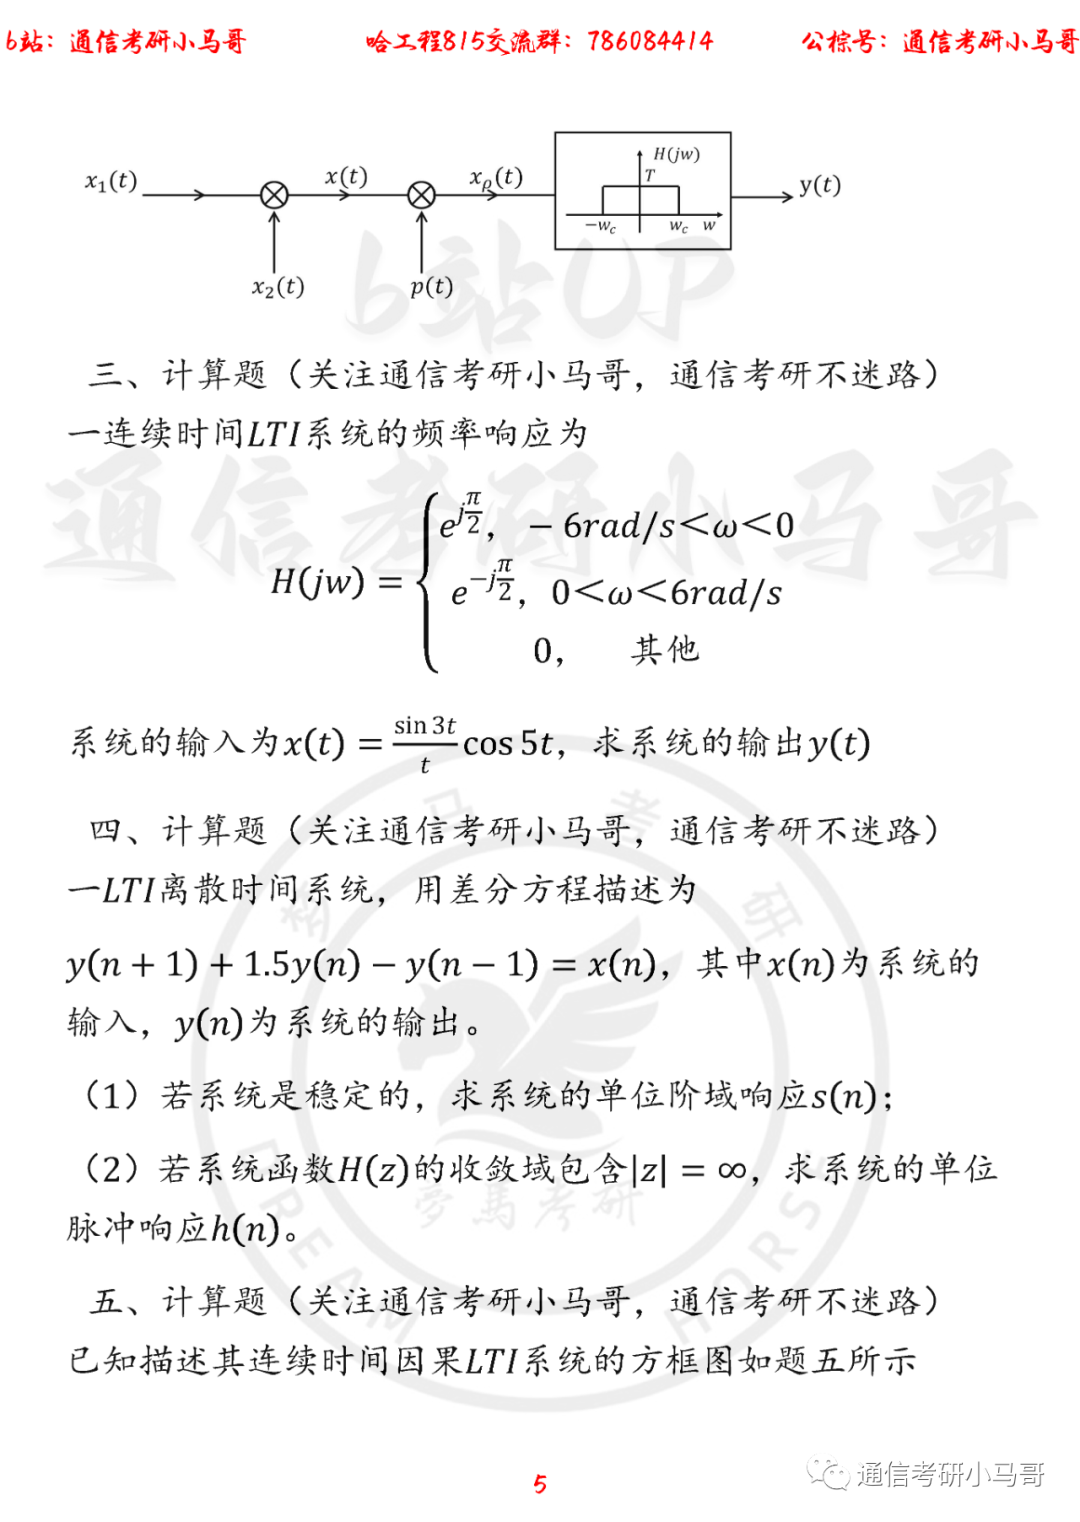 b站：通信考研小马哥 哈工程815交流群：786084414 公棕号：通信考研小马哥
x₁(t) x(t) xₚ(t) H(jw) T −w_c w_c w y(t)
x₂(t) p(t)
b站UP
三、计算题（关注通信考研小马哥，通信考研不迷路）
一连续时间LTI系统的频率响应为
通信考研小马哥
H(jw) = { e^{jπ/2}，−6rad/s＜ω＜0
e^{−jπ/2}，0＜ω＜6rad/s
0， 其他
系统的输入为x(t) = \frac{sin 3t}{t} cos 5t，求系统的输出y(t)
四、计算题（关注通信考研小马哥，通信考研不迷路）
一LTI离散时间系统，用差分方程描述为
y(n + 1) + 1.5y(n) − y(n − 1) = x(n)，其中x(n)为系统的
输入，y(n)为系统的输出。
（1）若系统是稳定的，求系统的单位阶域响应s(n)；
（2）若系统函数H(z)的收敛域包含|z| = ∞，求系统的单位
脉冲响应h(n)。
梦马考研
夢馬考研
DREAM HORSE
五、计算题（关注通信考研小马哥，通信考研不迷路）
已知描述其连续时间因果LTI系统的方框图如题五所示
通信考研小马哥
5